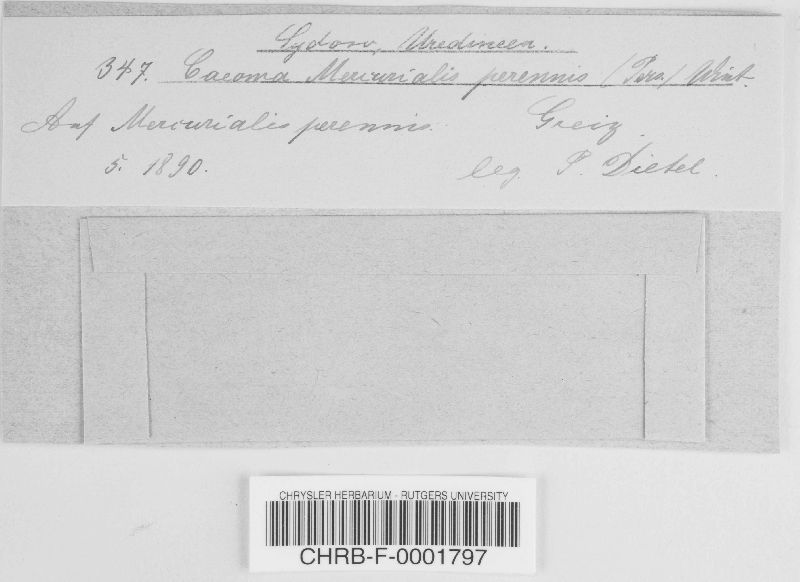 Sydow, Uredineen.
347. Caeoma Mercurialis perennis (Pers.) Wint.
Auf Mercurialis perennis. Greiz.
5. 1890. leg. P. Dietel.
CHRYSLER HERBARIUM - RUTGERS UNIVERSITY
CHRB-F-0001797